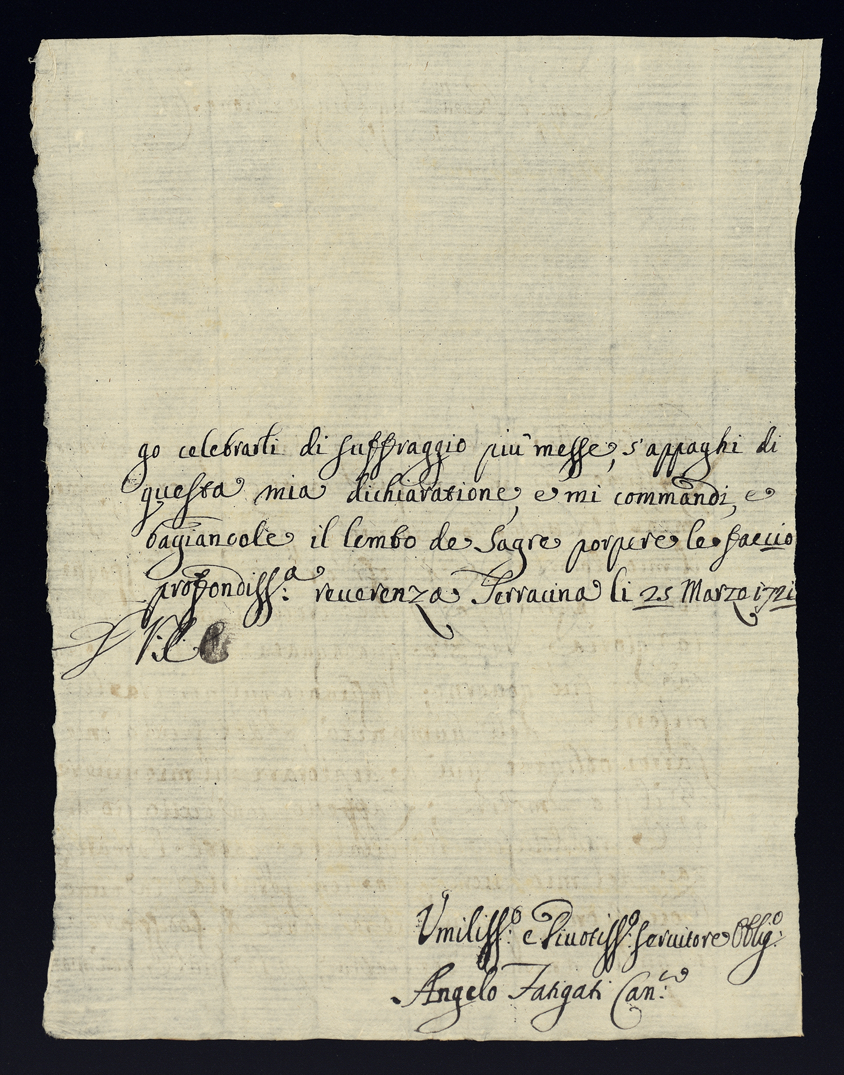 go celebrarli di suffraggio più messe, s'appaghi di
questa mia dichiaratione, e mi commandi, e
bagiancole il lembo de Sagre porpere le faccio
profondiss:ª reuerenza Terracina li 25 Marzo 1721
V: E
Vmiliss:º e Diuotiss:º seruitore Obblig:º
Angelo Fatigati Can:co